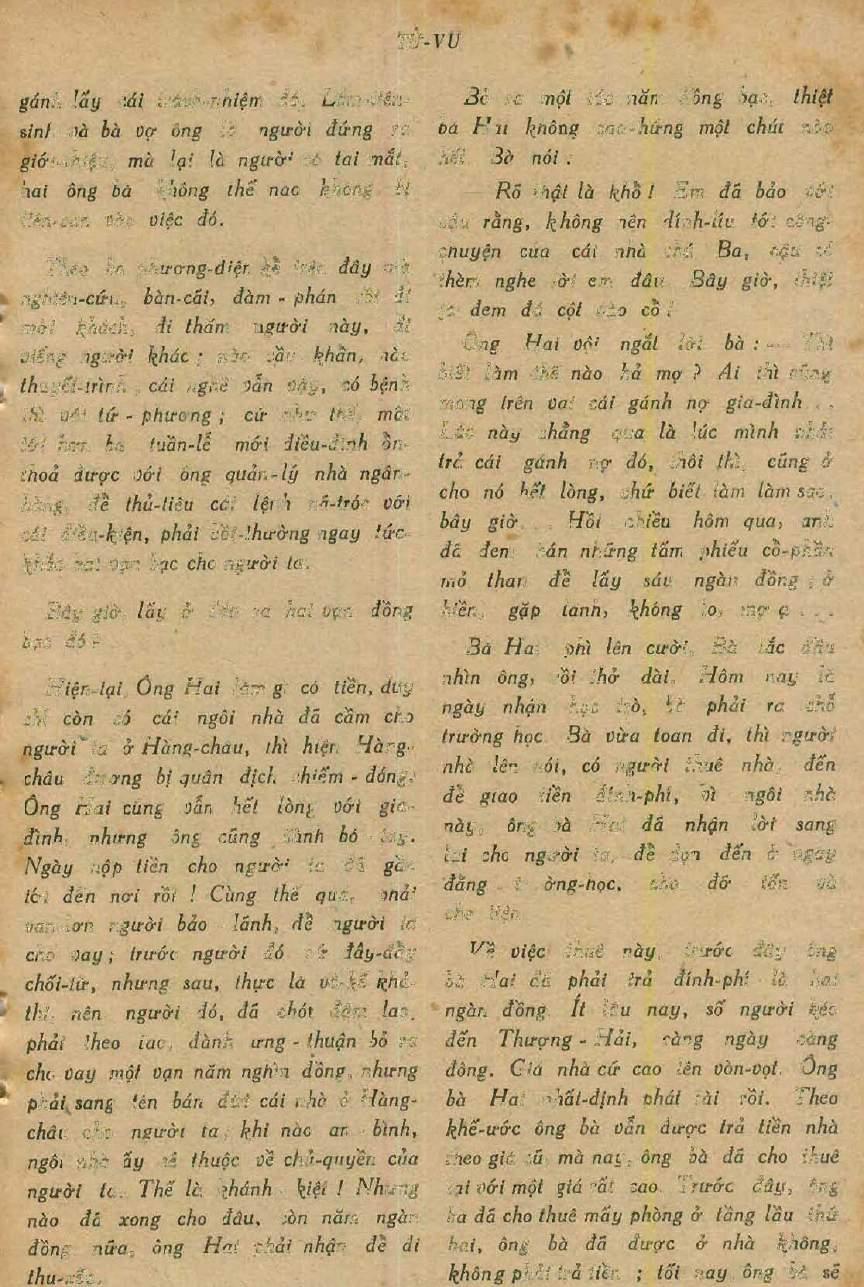 TỪ-VU
gánh lấy cái trách-nhiệm đó. Lâm-tiên-
sinh và bà vợ ông là người đứng ra
giới-thiệu, mà lại là người có tai mắt,
hai ông bà không thể nào không bị
liên-can vào việc đó.
Theo ba phương-diện kể trên đây mà
nghiên-cứu, bàn-cãi, đàm-phán rồi đi
mời khách, đi thăm người này, đi
viếng người khác; nào cầu khẩn, nào
thuyết-trình, cái nghề vẫn vậy, có bệnh
thì vái tứ-phương; cứ như thế, mất
tới hơn ba tuần-lễ mới điều-đình ổn-
thoả được với ông quản-lý nhà ngân-
hàng, để thủ-tiêu cái lệnh nã-tróc với
cái điều-kiện, phải bồi-thường ngay tức-
khắc hai vạn bạc cho người ta.
Bây giờ lấy ở đâu ra hai vạn đồng
bạc đó?
Hiện-lại, Ông Hai làm gì có tiền, duy
chỉ còn có cái ngôi nhà đã cầm cho
người ta ở Hàng-châu, thì hiện Hàng-
châu đương bị quân địch chiếm-đóng.
Ông Hai cũng vẫn hết lòng với gia-
đình, nhưng ông cũng đành bó tay.
Ngày nộp tiền cho người ta đã gần
tới đến nơi rồi! Cùng thế quá, phải
van-lơn người bảo lãnh, để người ta
cho vay; trước người đó cứ đây-đẩy
chối-từ, nhưng sau, thực là vô-kế khả-
thi, nên người đó, đã chót đâm lao,
phải theo lao, đành ưng-thuận bỏ ra
cho vay một vạn năm nghìn đồng, nhưng
phải sang tên bán đứt cái nhà ở Hàng-
châu cho người ta, khi nào an bình,
ngôi nhà ấy sẽ thuộc về chủ-quyền của
người ta. Thế là khánh kiệt! Nhưng
nào đã xong cho đâu, còn năm ngàn
đồng nữa, ông Hai phải nhận để đi
thu-xếp.
Bỏ ra một lúc năm đồng bạc, thiệt
bà Hai không cao-hứng một chút nào
hết. Bà nói.
— Rõ thật là khổ! Em đã bảo với
cậu rằng, không nên dính-líu tới công-
chuyện của cái nhà chú Ba, cậu có
thèm nghe lời em đâu. Bây giờ, thiệt
là đem đá cột vào cổ!
Ông Hai vội ngắt lời bà: — Thì
biết làm thế nào hả mợ? Ai thì cũng
mang trên vai cái gánh nợ gia-đình...
Lúc này chẳng qua là lúc mình phải
trả cái gánh nợ đó, thôi thì, cũng ở
cho nó hết lòng, chứ biết làm làm sao,
bây giờ... Hồi chiều hôm qua, anh
đã đem bán những tấm phiếu cổ-phần
mỏ than để lấy sáu ngàn đồng; ở
hiền, gặp lành, không lo, mợ ạ...
Bà Hai phì lên cười. Bà lắc đầu
nhìn ông, rồi thở dài. Hôm nay là
ngày nhận học trò, bà phải ra chỗ
trường học. Bà vừa toan đi, thì người
nhà lên nói, có người thuê nhà, đến
để giao tiền đính-phí, vì ngôi nhà
này, ông bà Hai đã nhận lời sang
lại cho người ta, để dọn đến ở ngay
đằng trường-học, cho đỡ tốn và
cho tiện.
Về việc thuê này, trước đây ông
bà Hai đã phải trả đính-phí là hai
ngàn đồng. Ít lâu nay, số người kéo
đến Thượng-Hải, càng ngày càng
đông. Giá nhà cứ cao lên vòn-vọt. Ông
bà Hai nhất-định phát tài rồi. Theo
khế-ước ông bà vẫn được trả tiền nhà
theo giá cũ, mà nay, ông bà đã cho thuê
lại với một giá rất cao. Trước đây, ông
bà đã cho thuê mấy phòng ở tầng lầu thứ
hai, ông bà đã được ở nhà không,
không phải trả tiền; tới nay ông bà sẽ